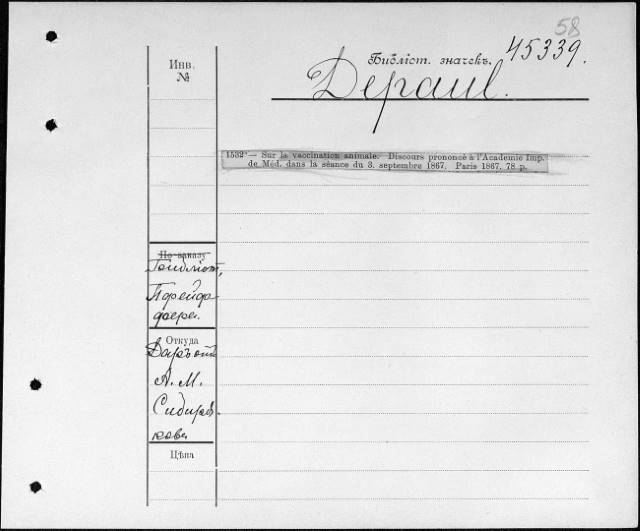 58
Инв.
№
Библіот. значекъ. 45339.
Depaul.
1532* — Sur la vaccination animale. Discours prononcé à l'Academie Imp.
de Méd. dans la séance du 3. septembre 1867. Paris 1867. 78 p.
По заказу
Библіот.
Пфейф
фера.
Откуда
Даръ отъ
А. М.
Сибиря-
кова
Цѣна